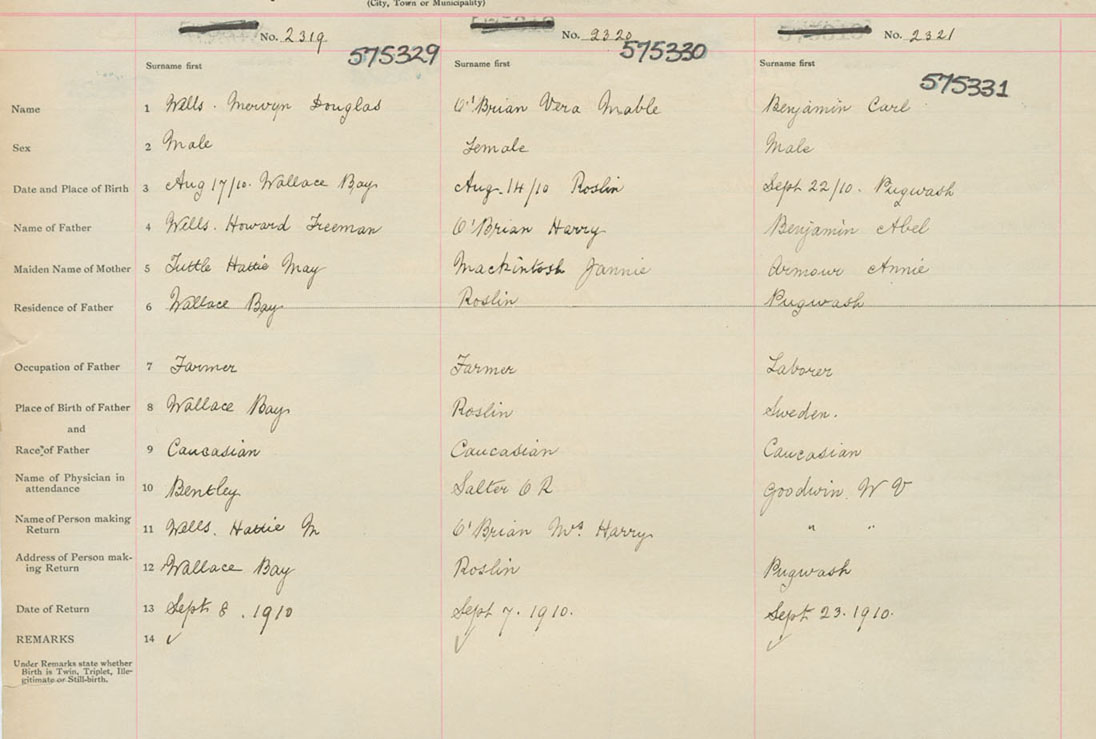 (City, Town or Municipality)
No. 2319 No. 2320 No. 2321
575329 575330 575331
Surname first Surname first Surname first
Name 1 Wells. Mervyn Douglas O'Brian Vera Mable Benjamin Carl
Sex 2 Male Female Male
Date and Place of Birth 3 Aug 17/10. Wallace Bay Aug. 14/10 Roslin Sept 22/10. Pugwash
Name of Father 4 Wells. Howard Freeman O'Brian Harry Benjamin Abel
Maiden Name of Mother 5 Tuttle Hattie May Mackintosh Jannie Armour Annie
Residence of Father 6 Wallace Bay Roslin Pugwash
Occupation of Father 7 Farmer Farmer Laborer
Place of Birth of Father 8 Wallace Bay Roslin Sweden.
and
Race of Father 9 Caucasian Caucasian Caucasian
Name of Physician in
attendance 10 Bentley Salter C R Goodwin W V
Name of Person making
Return 11 Wells. Hattie M O'Brian Mrs Harry " "
Address of Person mak-
ing Return 12 Wallace Bay Roslin Pugwash
Date of Return 13 Sept 8. 1910 Sept 7. 1910. Sept 23. 1910.
REMARKS 14 ✓ ✓ ✓
Under Remarks state whether
Birth is Twin, Triplet, Ille-
gitimate or Still-birth.